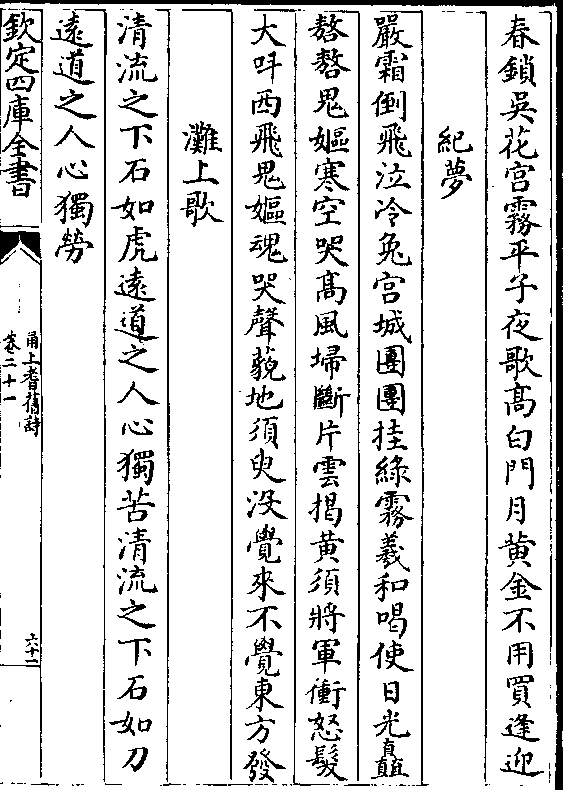 春鎖吳花宫霧平子夜歌髙白門月黄金不用買逢迎
紀夢
嚴霜倒飛泣冷兔宫城團團挂綠霧羲和喝使日光矗
嗸嗸鬼嫗寒空哭髙風埽斷片雲揭黄須將軍衝怒髮
大呌西飛鬼嫗魂哭聲藐地須臾没覺來不覺東方發
灘上歌
清流之下石如虎遠道之人心獨苦清流之下石如刀
遠道之人心獨勞
欽定四庫全書
甬上耆舊詩
卷二十一
六十二